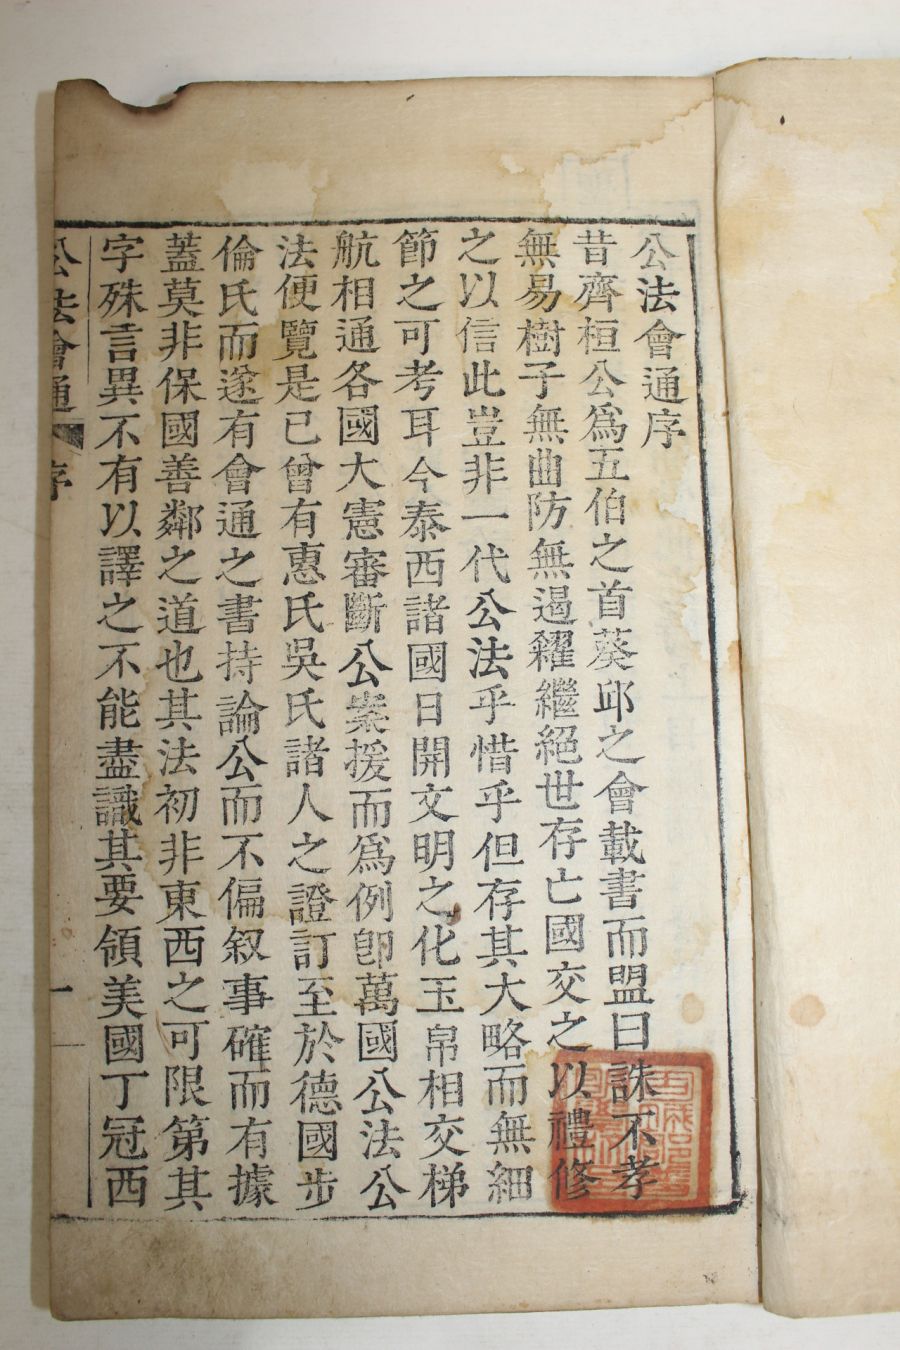 公法會通序
昔齊桓公爲五伯之首葵邱之會載書而盟曰誅不孝
無易樹子無曲防無遏糴繼絕世存亡國交之以禮修
之以信此豈非一代公法乎惜乎但存其大略而無細
節之可考耳今泰西諸國日開文明之化玉帛相交梯
航相通各國大憲審斷公案援而爲例卽萬國公法公
法便覽是已曾有惠氏吳氏諸人之證訂至於德國步
倫氏而遂有會通之書持論公而不偏叙事確而有據
蓋莫非保國善鄰之道也其法初非東西之可限第其
字殊言異不有以譯之不能盡識其要領美國丁冠西
公法會通 序 一